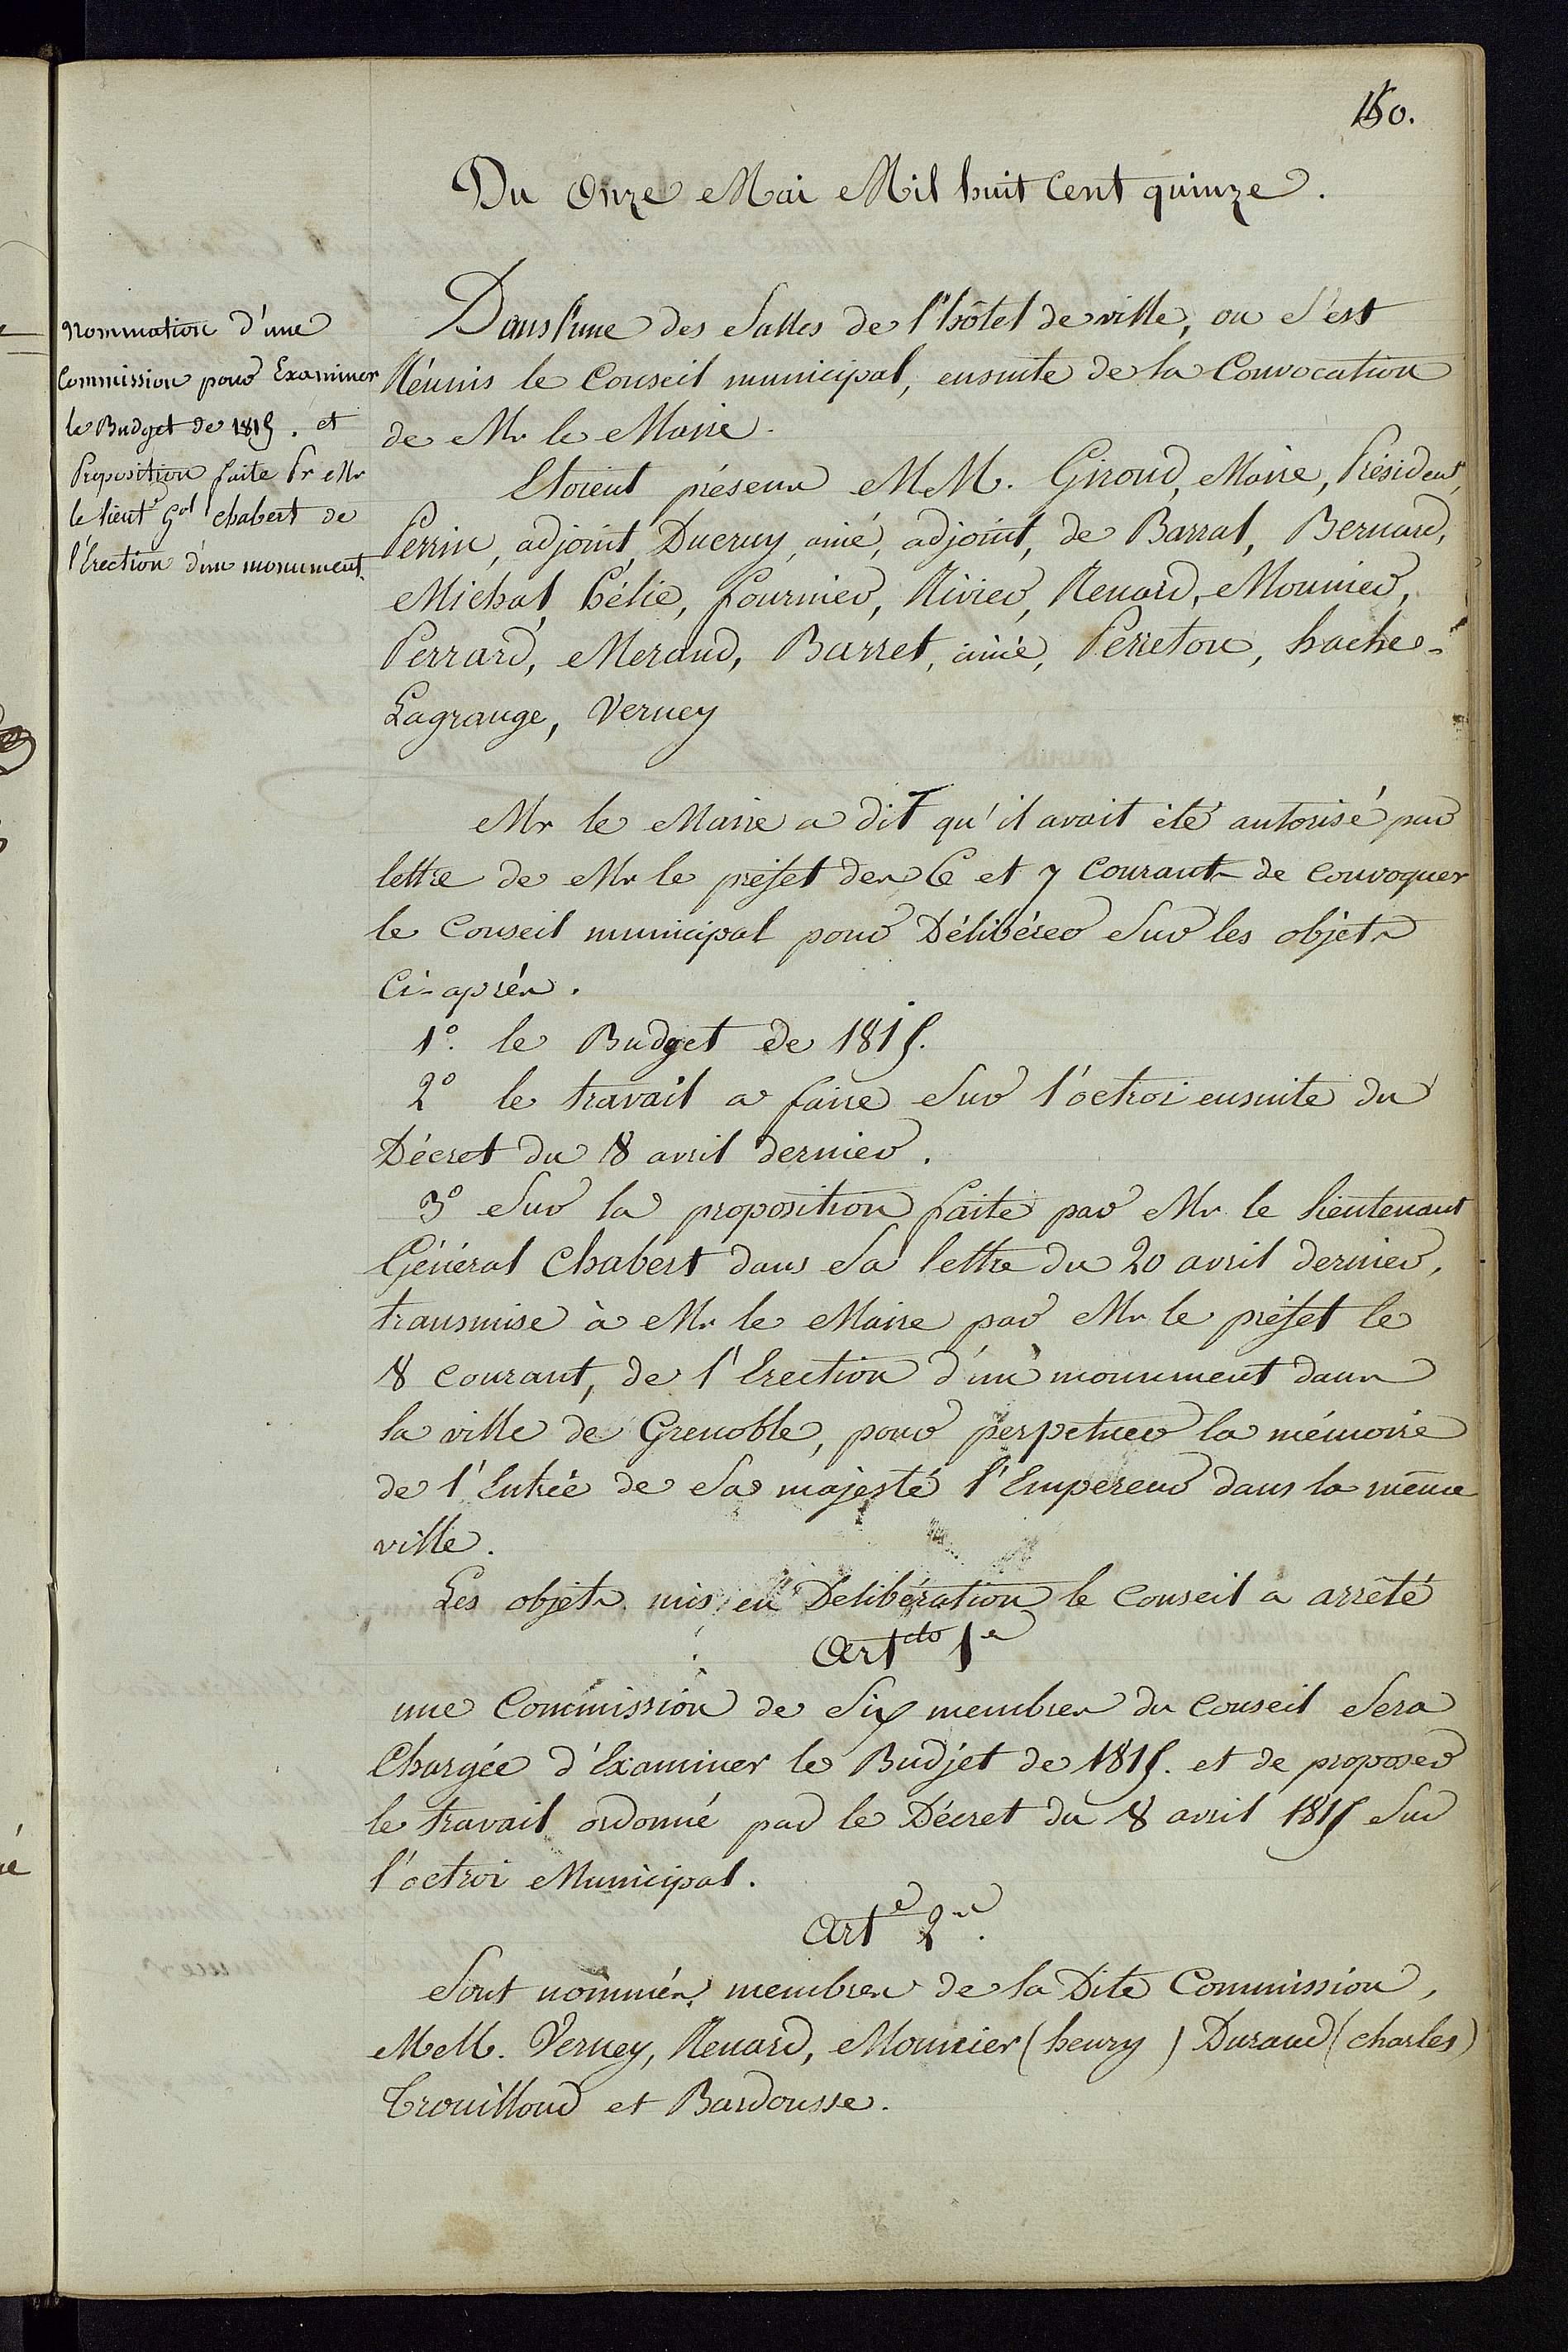 150.
Du Onze Mai Mil huit Cent quinze.
nommation d'une
Commission pour Examiner
le Budget de 1815. et
Proposition faite Pr Mr
le lieut Gal chabert de
l'Erection d'un monument.
Dans l'une des Salles de l'hôtel de ville, ou S'est
Réunis le Conseil municipal, ensuite de la Convocation
de Mr le Maire.
Etoient présens MM. Giroud, Maire, Président,
Perrin, adjoint, Ducruy, ainé, adjoint, de Barral, Bernard,
Michal, hélie, fournier, Rivier, Renard, Mounier,
Perrard, Meraud, Barret, ainé, Perreton, hache-
Lagrange, Verney
Mr le Maire a dit qu'il avait été autorisé par
lettre de Mr le préfet des 6 et 7 Courant de Convoquer
le Conseil municipal pour Délibérer Sur les objets
Ci-après.
1º. le Budget de 1815.
2º le travail a faire Sur l'octroi ensuite du
Décret du 8 avril dernier.
3º Sur la proposition faite par Mr le lieutenant
Général Chabert dans Sa lettre du 20 avril dernier,
transmise à Mr le Maire par Mr le préfet le
8 Courant, de l'Erection d'un monument dans
la ville de Grenoble, pour perpetuer la mémoire
de l'Entrée de Sa majesté l'Empereur dans la même
ville.
Les objets mis en Deliberation le Conseil a arrêté
Artcle 1er
une Commission de Six membres du Conseil Sera
Chargée d'Examiner le Budjet de 1815. et de proposer
le travail ordonné par le Décret du 8 avril 1815 Sur
l'octroi Municipal.
Arte 2e.
Sont nommés membres de la Dite Commission,
MM. Verney, Renard, Mounier (henry) Durand (charles)
Trouilloud et Bardousse.